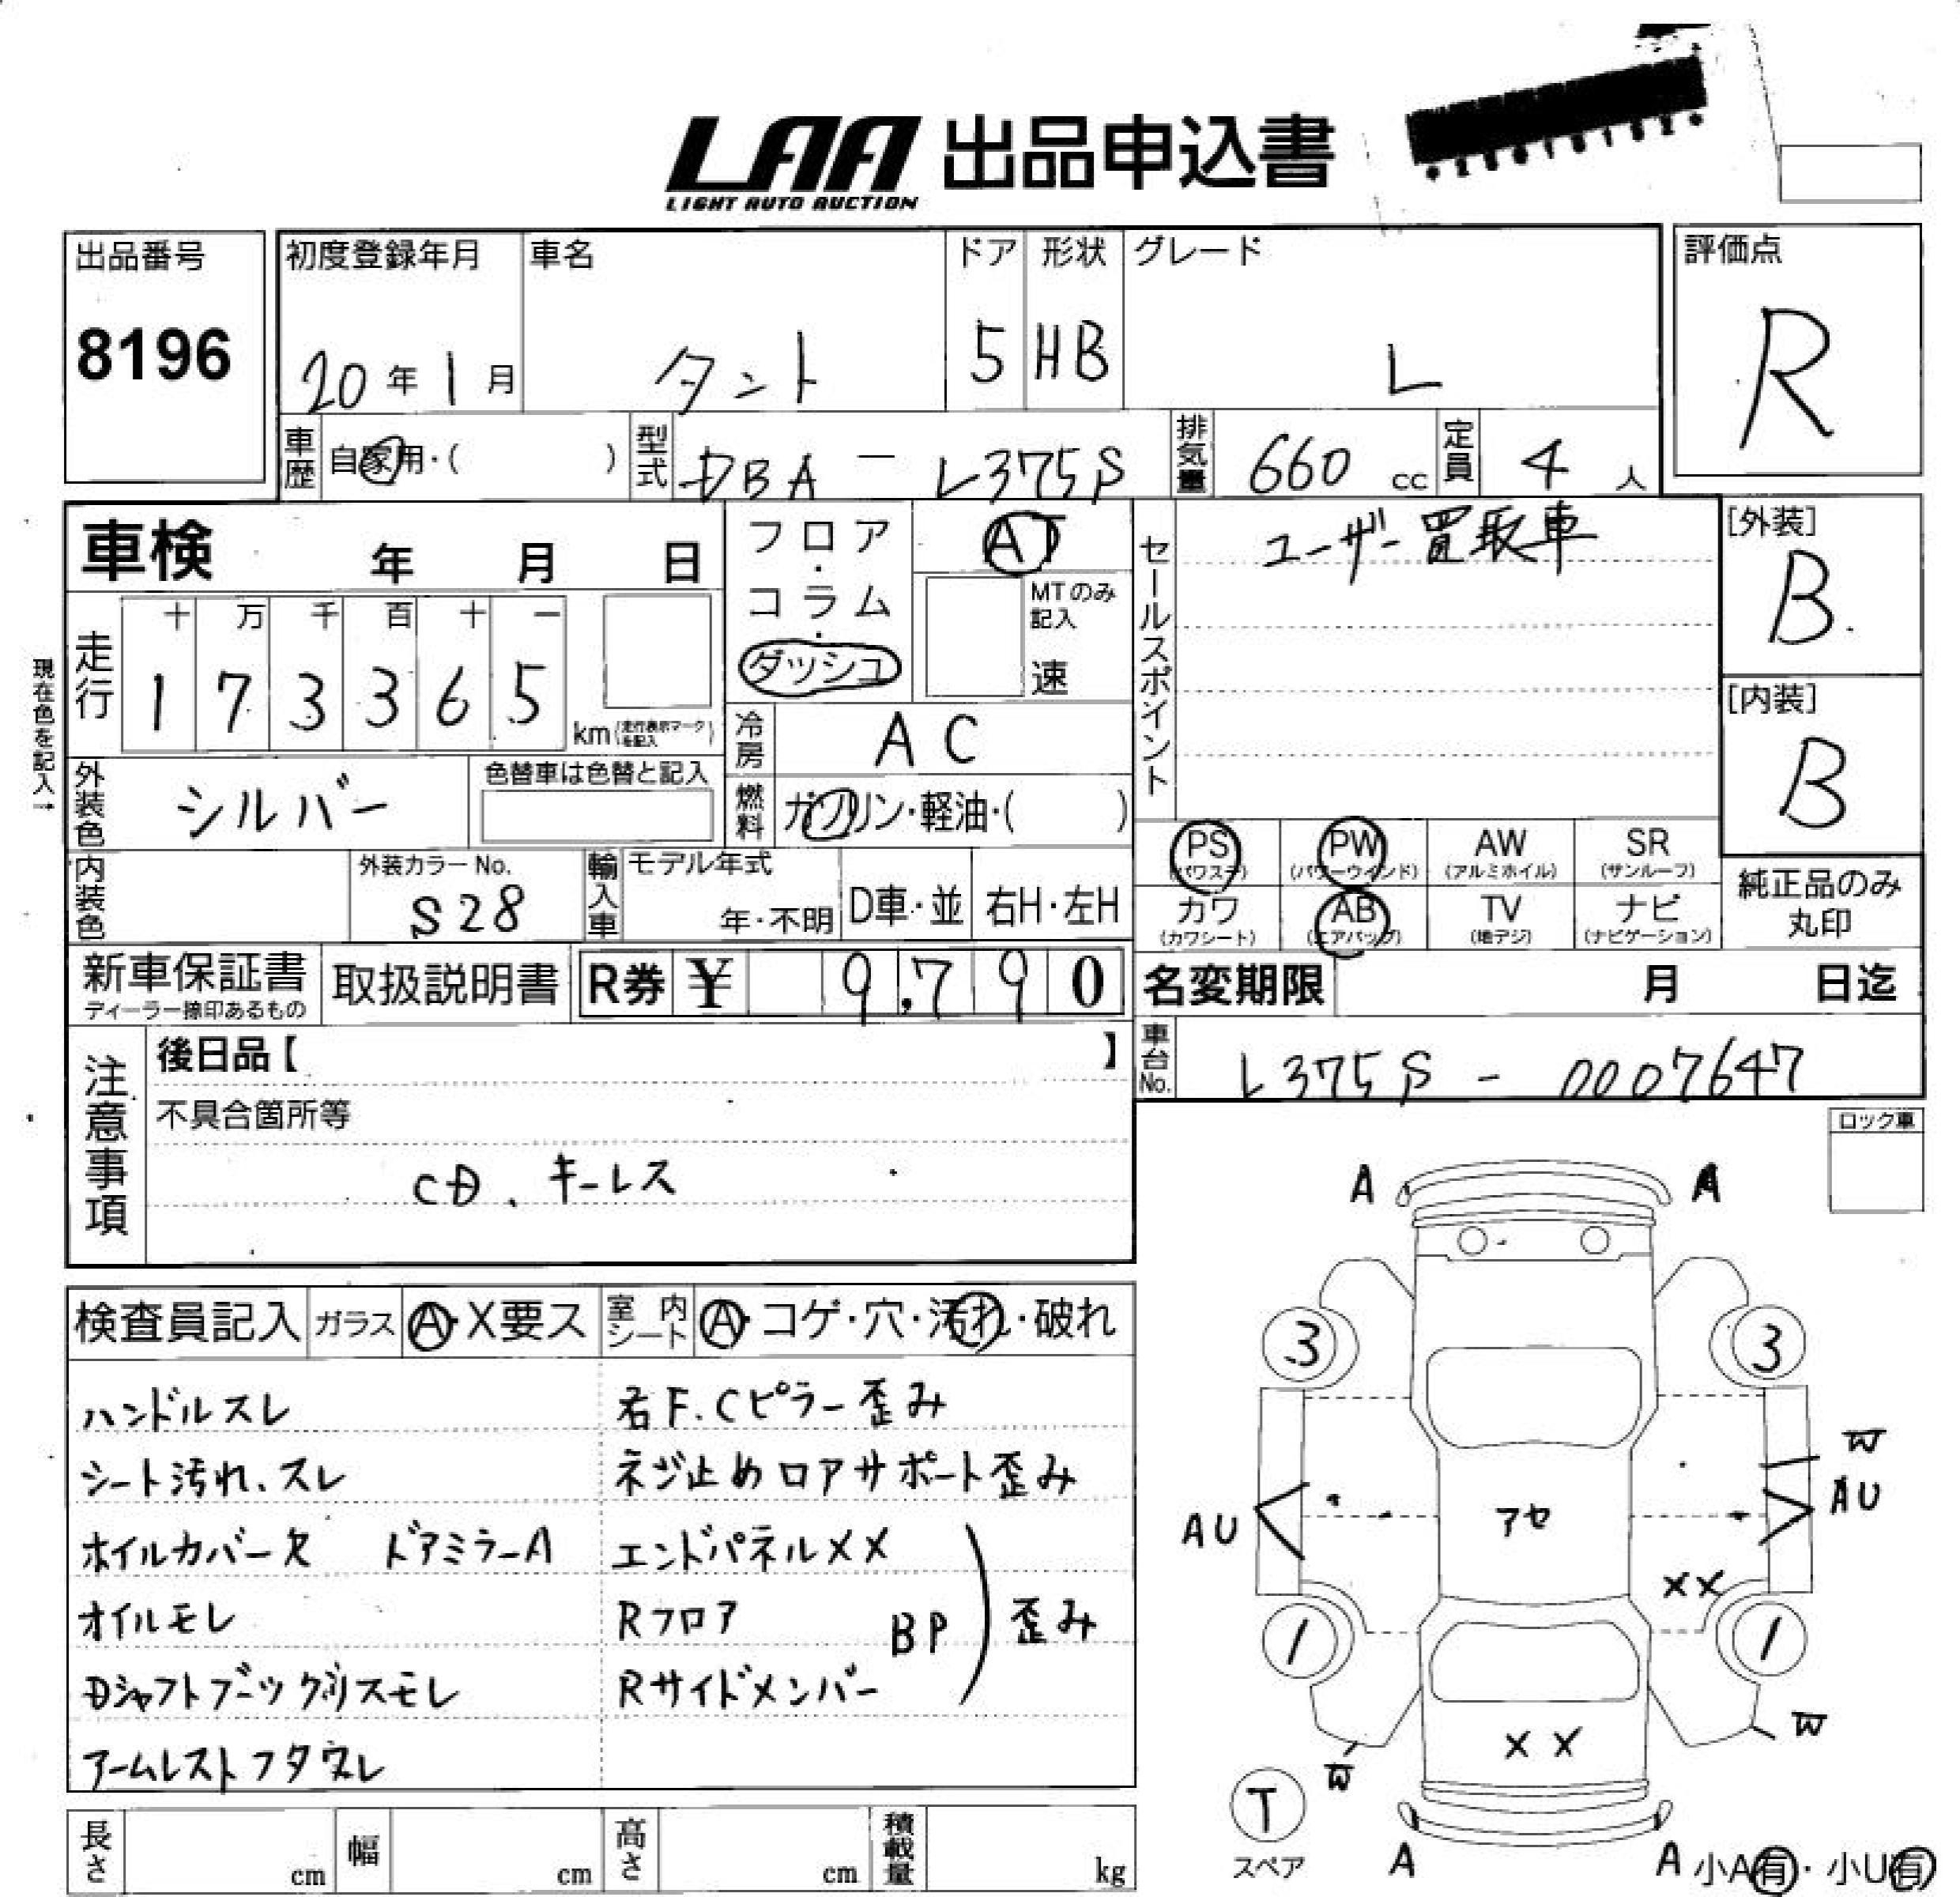 LAA 出品申込書
LIGHT AUTO AUCTION
出品番号
8196
初度登録年月
20年1月
車名
タント
ドア
5
形状
HB
グレード
L
評価点
R
車歴 自家用・( )
型式 DBA - L375S
排気量 660 cc
定員 4 人
車検 年 月 日
フロア・コラム・ダッシュ
AT
MTのみ記入
速
セールスポイント
ユーザー買取車
[外装]
B
[内装]
B
現在色を記入→
走行
十 万 千 百 十 一
1 7 3 3 6 5
km(走行表示マークを記入)
冷房 AC
燃料 ガソリン・軽油・( )
外装色 シルバー
色替車は色替と記入
内装色
外装カラーNo.
S28
輸入車
モデル年式
年・不明
D車・並
右H・左H
PS (パワステ)
PW (パワーウインド)
AW (アルミホイル)
SR (サンルーフ)
カワ (カワシート)
AB (エアバッグ)
TV (地デジ)
ナビ (ナビゲーション)
純正品のみ
丸印
新車保証書
ディーラー捺印あるもの
取扱説明書
R券 ¥ 9,790
名変期限 月 日迄
車台No. L375S - 0007647
注意事項
後日品【 】
不具合箇所等
CD、キーレス
ロック車
検査員記入
ガラス Ⓐ・X要ス
室内シート Ⓐ・コゲ・穴・汚れ・破れ
ハンドルスレ
シート汚れ、スレ
ホイルカバー欠 ドアミラーA
オイルモレ
Dシャフトブーツグリスモレ
アームレストフタ
右F.Cピラー歪み
ネジ止めロアサポート歪み
エンドパネルXX
Rフロア BP 歪み
Rサイドメンバー
A A
3 3
W
AU AU
アセ
XX
1 1
W W
XX
T
スペア
A A
小A有・小U有
長さ cm
幅 cm
高さ cm
積載量 kg